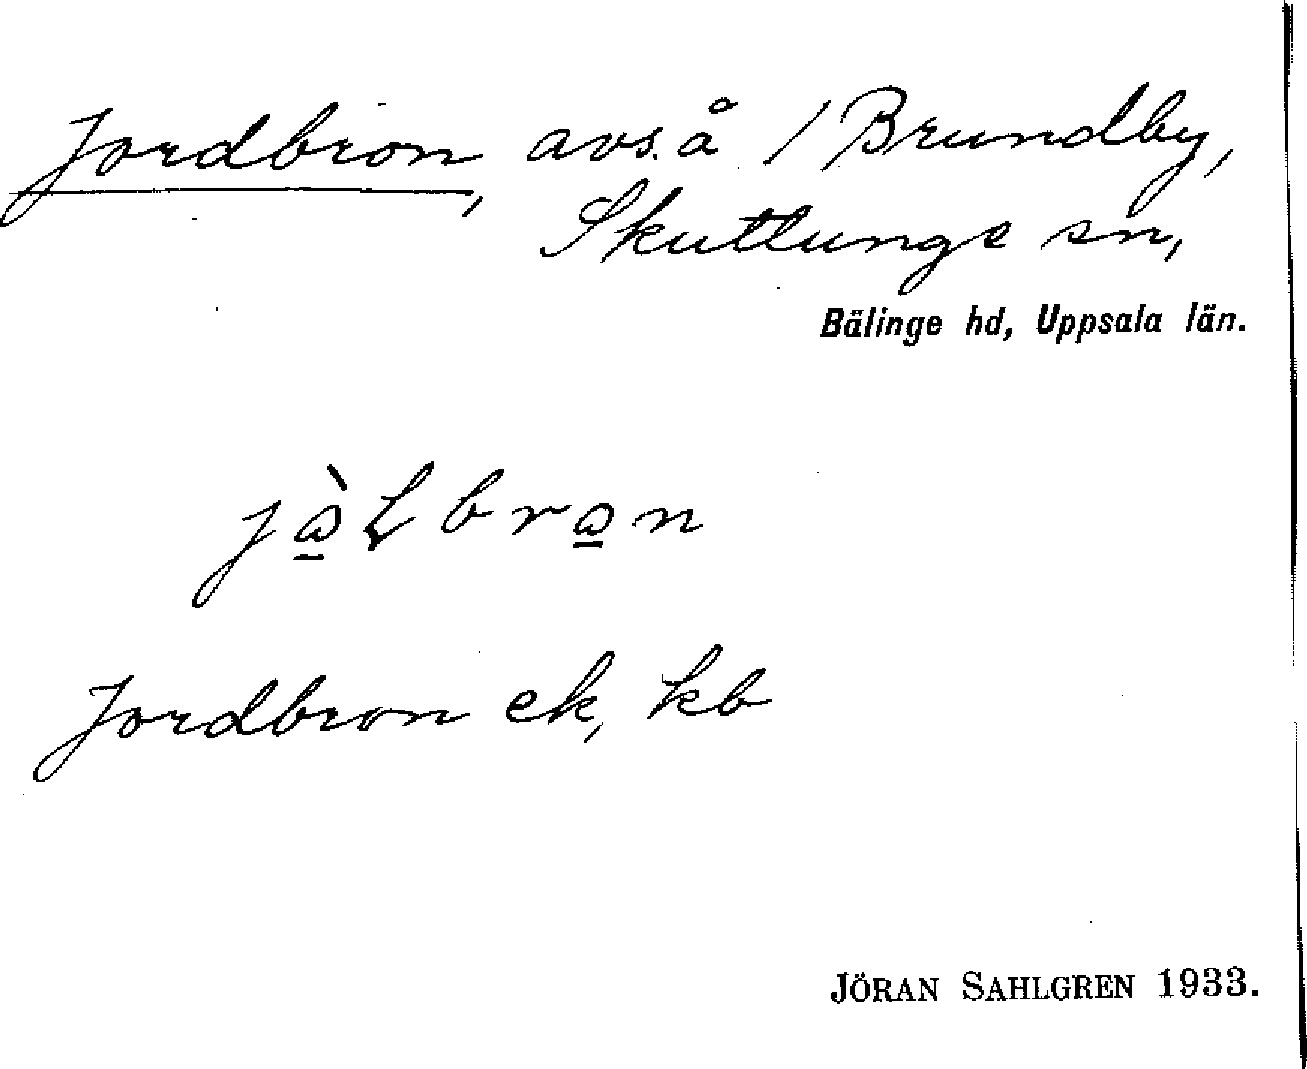 Jordbron, avs. å / Brundby,
Skuttunge sn,
Bälinge hd, Uppsala län.
Jordbron ek, kb
JÖRAN SAHLGREN 1933.